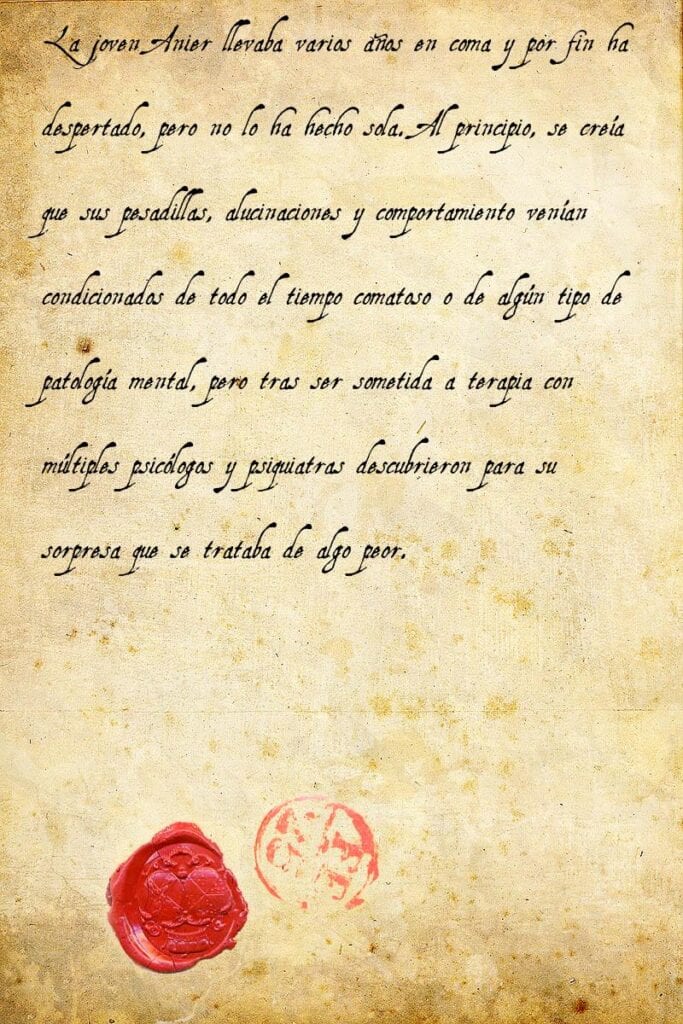 La joven Anier llevaba varios años en coma y por fin ha
despertado, pero no lo ha hecho sola. Al principio, se creía
que sus pesadillas, alucinaciones y comportamiento venían
condicionados de todo el tiempo comatoso o de algún tipo de
patología mental, pero tras ser sometida a terapia con
múltiples psicólogos y psiquiatras descubrieron para su
sorpresa que se trataba de algo peor.